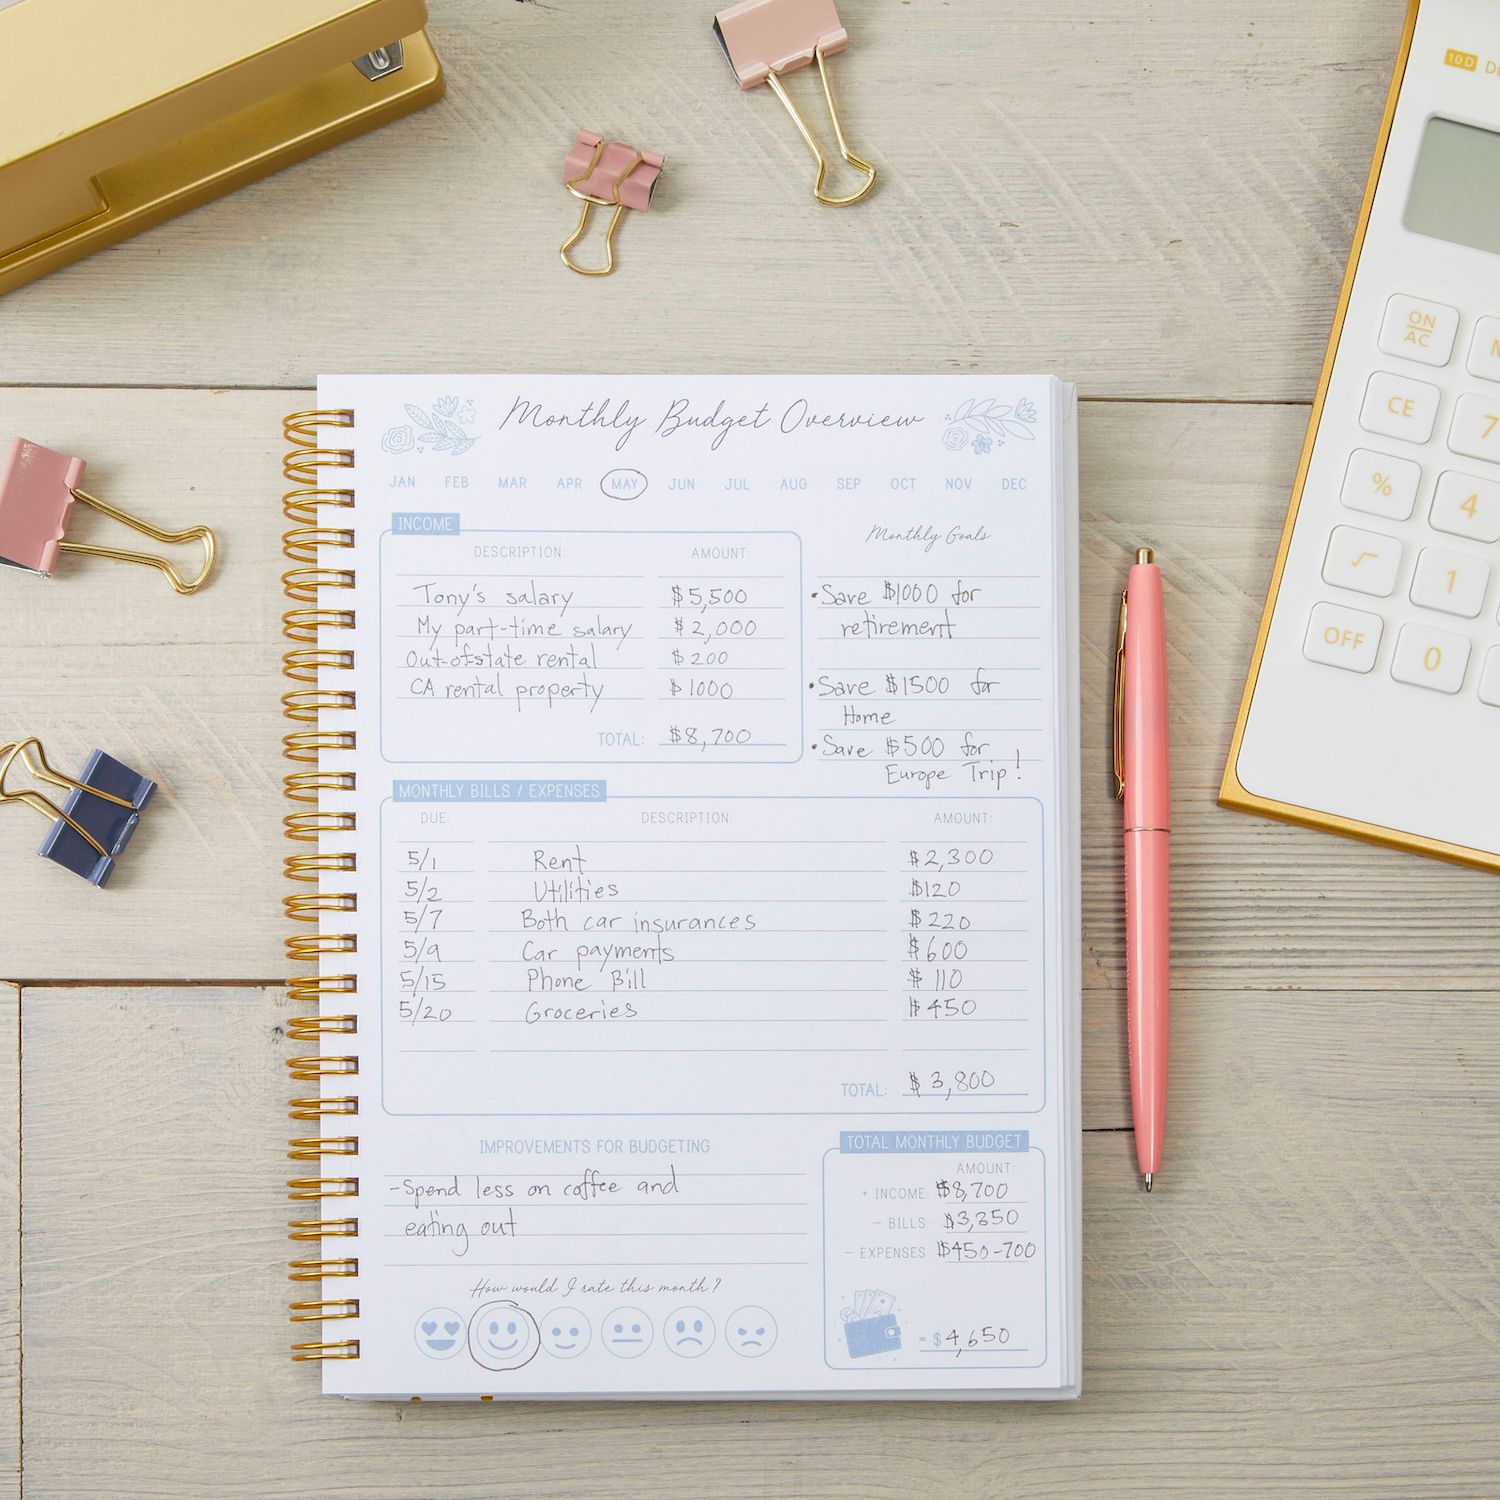 10 D
Monthly Budget Overview
JAN FEB MAR APR MAY JUN JUL AUG SEP OCT NOV DEC
INCOME
DESCRIPTION: AMOUNT:
Tony's salary $5,500
My part-time salary $2,000
Out-of-state rental $200
CA rental property $1000
TOTAL: $8,700
Monthly Goals
• Save $1000 for
retirement
• Save $1500 for
Home
• Save $500 for
Europe Trip!
MONTHLY BILLS / EXPENSES
DUE: DESCRIPTION: AMOUNT:
5/1 Rent $2,300
5/2 Utilities $120
5/7 Both car insurances $220
5/9 Car payments $600
5/15 Phone Bill $110
5/20 Groceries $450
TOTAL: $3,800
IMPROVEMENTS FOR BUDGETING
-Spend less on coffee and
eating out
How would I rate this month?
TOTAL MONTHLY BUDGET
AMOUNT:
+ INCOME: $8,700
- BILLS: $3,350
- EXPENSES: $450-700
= $4,650
ON
AC
CE 7
% 4
√ 1
OFF 0